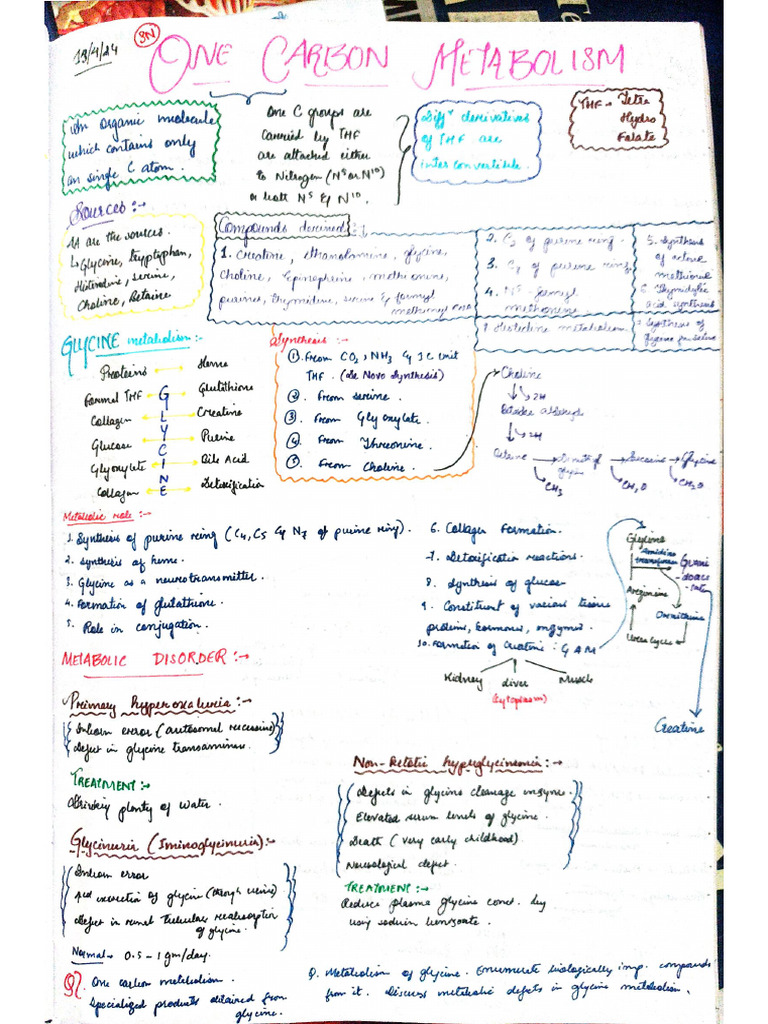 13/4/24
SN
ONE CARBON METABOLISM
An organic molecule
which contains only
an single C atom.
One C groups are
carried by THF
are attached either
to Nitrogen (N5 or N10)
or both N5 & N10.
Diffn derivatives
of THF are
inter convertible.
THF → Tetra
Hydro
Folate
Sources:-
AA are the sources.
↳ Glycine, tryptophan,
Histidine, serine,
Choline, Betaine
Compounds derived:-
1. Creatine, ethanolamine, glycine,
choline, Epinephrine, methionine,
purines, thymidine, serine & formyl
methionyl
2. C2 of purine ring.
3. C8 of purine ring.
4. N5-formyl
methionine
1. Histidine metabolism.
5. Synthesis
of
methionine
6. Thymidylic
acid synthesis
Synthesis of
GLYCINE metabolism:-
Proteins
Heme
Formal THF
Glutathione
Collagen
Creatine
Glucose
Purine
Glyoxylate
Bile Acid
Collagen
Detoxification
GLYCINE
Synthesis:-
① From CO2, NH3 & 1C unit
THF. (De Novo Synthesis)
② From serine.
③ From Glyoxylate.
④ From Threonine.
⑤ From Choline.
Choline
↓→2H
Betaine aldehyde
↓→2H
Betaine → Dimethyl
glycine → Sarcosine → Glycine
CH3
CH2O
CH2O
Metabolic role:-
1. Synthesis of purine ring (C4, C5 & N7 of purine ring).
2. Synthesis of heme.
3. Glycine as a neurotransmitter.
4. Formation of glutathione.
5. Role in conjugation.
6. Collagen Formation.
7. Detoxification reactions.
8. Synthesis of glucose
9. Constituent of various tissue
proteins, hormones, enzymes.
10. Formation of Creatine: GAM
Kidney Liver Muscle
(Cytoplasm)
Glycine
Amidino
transferase
Guani
-doace
-tate
Arginine
Ornithine
Urea cycle
Creatine
METABOLIC DISORDER:→
Primary hyperoxaluria:→
Inborn error (autosomal recessive)
Defect in glycine transaminase.
TREATMENT:→
Drinking plenty of Water.
Glycinuria (Iminoglycinuria):→
Inborn error
excretion of glycine (through urine)
Defect in renal tubular reabsorption
of glycine.
Normal → 0.5 - 1 gm/day.
Non-Ketotic hyperglycinemia:→
Defects in glycine cleavage enzyme.
Elevated serum levels of glycine.
Death (very early childhood)
Neurological defect.
TREATMENT:→
Reduce plasma glycine conct. by
using sodium benzoate.
Q. One carbon metabolism.
Specialized products obtained from
glycine.
Q. Metabolism of glycine. Enumerate biologically imp. compounds
from it. Discuss metabolic defects in glycine metabolism.